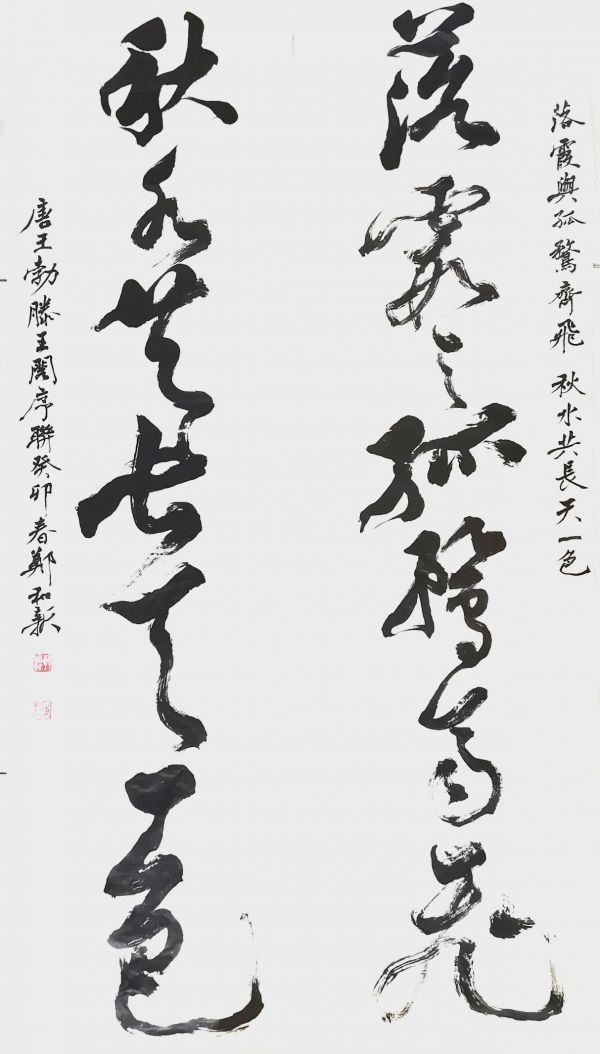 落霞與孤鶩齊飛 秋水共長天一色
落霞與孤鶩齊飛
秋水共長天一色
唐王勃滕王閣序聯癸卯春鄭和新